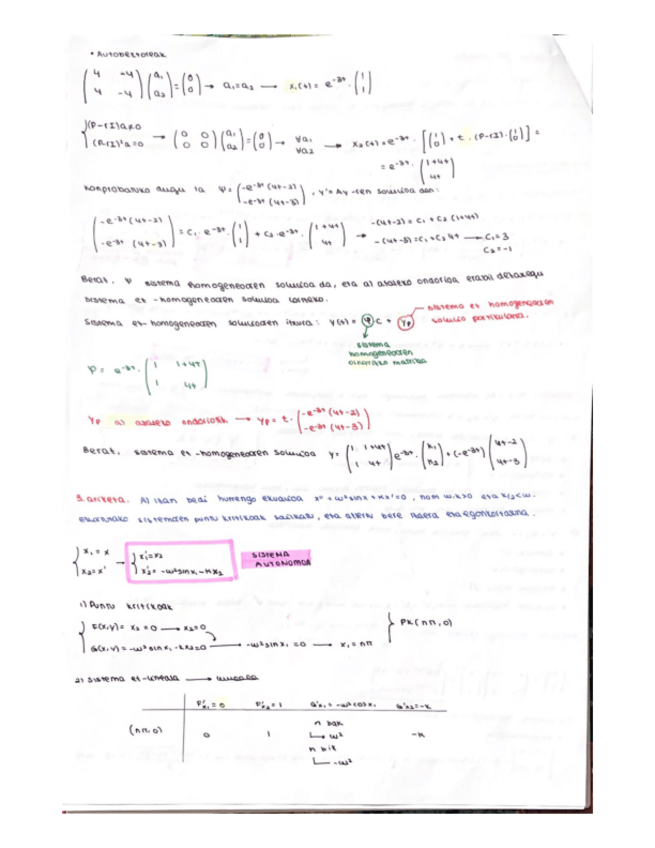 • Autobektoreak
(4 -4 / 4 -4)(a₁ / a₂) = (0 / 0) → a₁=a₂ → x₁(t) = e^-3t · (1 / 1)
{(P-rI)a≠0 / (P-rI)²a=0 → (0 0 / 0 0)(a₁ / a₂) = (0 / 0) → ∀a₁ / ∀a₂ → x₂(t) = e^-3t · [(1 / 0) + t · (P-rI)·(1 / 0)] =
= e^-3t · (1+4t / 4t)
Konprobatuko dugu ia Ψ = (-e^-3t (4t-2) / -e^-3t (4t-3)), Y'=Ay -ren soluzioa den:
(-e^-3t (4t-2) / -e^-3t (4t-3)) = c₁ · e^-3t · (1 / 1) + c₂ · e^-3t · (1+4t / 4t) → -(4t-2) = c₁ + c₂ (1+4t) / -(4t-3) = c₁ + c₂ 4t → c₁ = 3
c₂ = -1
Beraz, Ψ sistema homogeneoaren soluzioa da, eta a) ataleko ondorioa erabil dezakegu
sistema ez-homogeneoaren soluzioa lortzeko.
Sistema ez-homogeneoaren soluzioaren itxura: y(t) = φ c + yp → sistema ez homogeneoaren
soluzio partikularra.
sistema
homogeneoaren
oinarrizko matrizea
φ = e^-3t · (1 1+4t / 1 4t)
Yp a) ataleko ondoriotik → Yp = t · (-e^-3t (4t-2) / -e^-3t (4t-3))
Beraz, sistema ez-homogeneoaren soluzioa Y = (1 1+4t / 1 4t) e^-3t · (k₁ / k₂) + (-e^-3t) (4t-2 / 4t-3)
3. ariketa. A) Izan bedi hurrengo ekuazioa x'' + ω² sin x + kx' = 0, non ω,k>0 eta k/2<ω.
sistemaren puntu kritikoak sailkatu, eta aztertu bere izaera eta egonkortasuna.
{x₁ = x / x₂ = x' → {x₁' = x₂ / x₂' = -ω² sin x₁ - k x₂ SISTEMA
AUTONOMOA
1) Puntu kritikoak
{F(x,y) = x₂ = 0 → x₂ = 0
G(x,y) = -ω² sin x₁ - k x₂ = 0 → -ω² sin x₁ = 0 → x₁ = nπ } Pk (nπ, 0)
2) Sistema ez-lineala →
F'x₁ = 0 F'x₂ = 1 G'x₁ = -ω² cos x₁ G'x₂ = -k
(nπ, 0) 0 1 n bak → ω² -k
n bik
→ -ω²